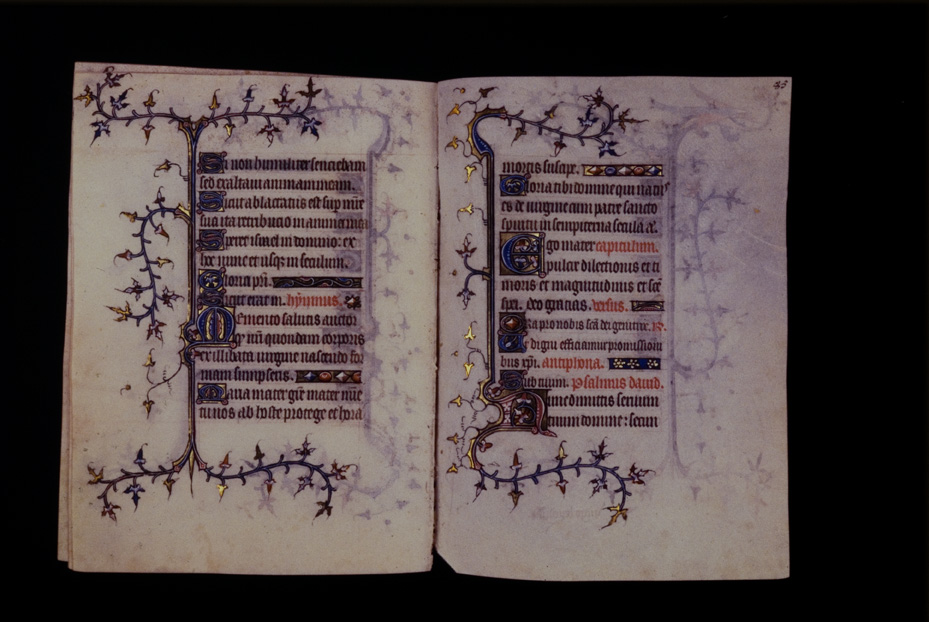 Si non humiliter sentiebam
sed exaltavi animam meam.
Sicut ablactatus est sup mře
sua ita retribucio in anima mea
Speret israel in domino: ex
hoc nunc et usq; in seculum.
Gloria při.
Sicut erat in. hymnus.
Memento salutis auctor
q nři quondam corporis
ex illibata virgine nascendo for
mam sumpseris.
Maria mater gře mater mïe
tu nos ab hoste protege et hora
85
mortis suscipe.
Gloria tibi domine qui natus
es de virgine cum patre sancto
spiritu in sempiterna secula a.
Ego mater capitulum.
pulcre dilectionis et ti
moris et magnitudinis et sče
spei. deo gracias. versus.
Ora pro nobis sča dei genitrix. R.
Ut digni efficiamur promissioni
bus xpi. antiphona.
Sub tuum. Psalmus david.
Nunc dimittis servum
tuum domine: secun